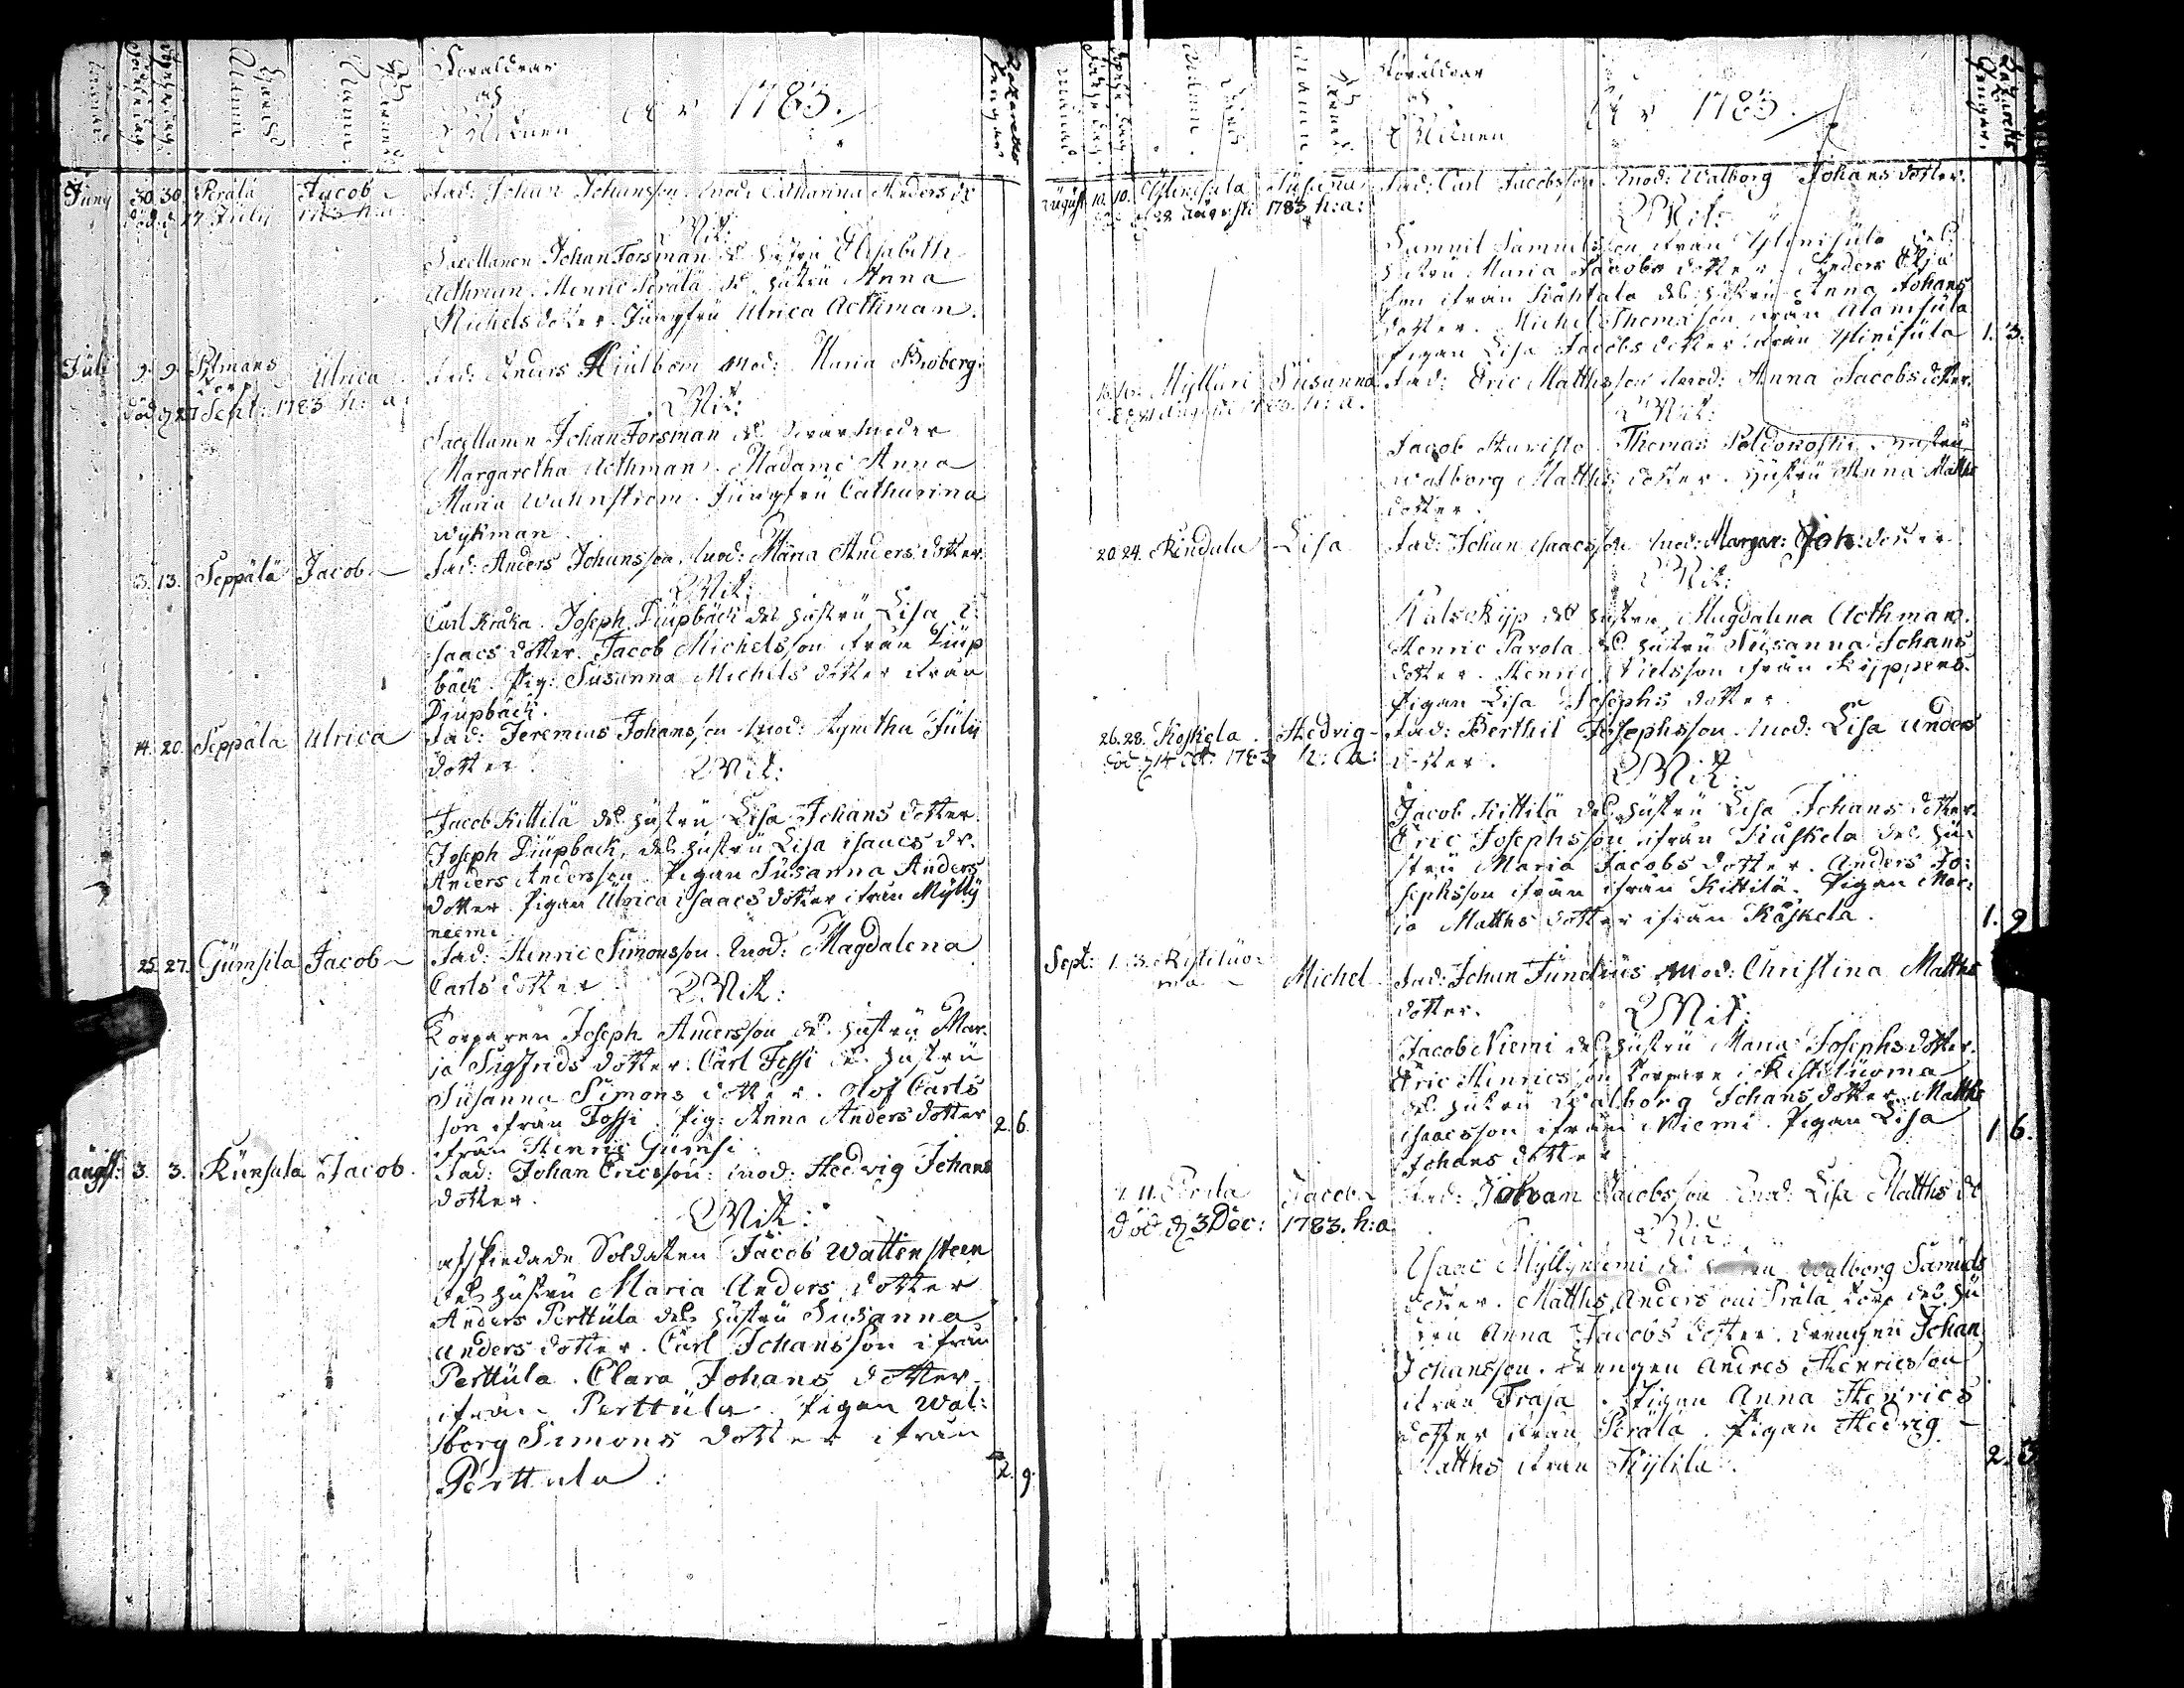 Månad
Födelse dag
Döpelse dag
Hemets Namn
Barnets Namn
Föräldrar
och
Vitnen
År 1783.
Juny 30 30 Perälä Jacob Fad: Johan Johansson. Mod: Catharina Anders dr
död d 17 July 1783 h: a:
Wit:
Sacellanen Johan Forsman des hustru Elisabeth
Aethman. Henric Perälä des hustru Anna
Michels dotter. Jungfru Ulrica Aethman.
Juli 9. 9. torp Ulrica Fad: Anders Mod: Maria Broberg.
död d 27 Sept: 1783 h: a:
Wit:
Sacellanen Johan Forsman des Svärmoder
Margaretha Aethman. Madame Anna
Maria Wahnström. Jungfru Catharina
Wykman.
13. Seppälä Jacob Fad: Anders Johansson. Mod: Maria Anders dotter.
Wit:
Carl Kråka. Joseph Djupbäck des hustru Lisa I:
saacs dotter. Jacob Michelsson ifrån Djup
bäck. Pig: Susanna Michels dotter ifrån
Djupbäck.
14. 20. Seppälä Ulrica Fad: Jeremias Johansson Mod: Agnetha Julii
dotter.
Wit:
Jacob Kittilä des hustru Lisa Johans dotter.
Joseph Djupback, des hustru Lisa isaacs dr.
Anders Andersson. Pigan Susanna Anders
dotter. Pigan Ulrica isaacs dotter ifrån Mylly
niemi.
25. 27. Gumsila Jacob Fad: Henric Simonsson. Mod: Magdalena
Carls dotter
Wit:
Torparen Joseph Andersson des hustru Mar:
ia Sigfrids dotter. Carl Fossi des hustru
Susanna Simons dotter. Olof Carls
son ifrån Fossi. Pig: Anna Anders dotter 2. 6.
ifrån Henric Gumsi.
augst: 3. 3. Kunsala Jacob. Fad: Johan Ericsson. Mod: Hedvig Johans
dotter.
Wit:
afskedade Soldaten Jacob Wattensteen
des hustru Maria Anders dotter
Anders Perttula des hustru Susanna
Anders dotter. Carl Johansson ifrån
Perttula. Clara Johans dotter
ifrån Perttula. Pigan Wal:
borg Simons dotter ifrån
Perttula. 2. 9.
Föräldrar
och
Vitnen
År 1783.
august 10. 10. Yliniskla Susanna Fad: Carl Jacobsson. Mod: Walborg Johans dotter.
d 28 augusti 1783 h: a:
Wit:
Samuel Samuelsson ifrån des
hustru Maria Jacobs dotter. Anders
son ifrån des hustru Anna Johans
dotter. Michel Thomasson ifrån
Pigan Lisa Jacobs dotter ifrån 1. 3.
16. Myllari Susanna Fad: Eric Matthsson Mod: Anna Jacobs dotter.
augusti 1783. h: a.
Wit:
Jacob Thomas hustru
Walborg Matths dotter. Hustru Anna Matths
dotter.
20. 24. Rindala Lisa Fad: Johan isaacsson Mod: Margar: Joh: dotter
Wit:
des hustru Magdalena Aethman.
Henric Pavola des hustru Susanna Johans
dotter. Henric Nielsson ifrån
Pigan Lisa Josephs dotter.
26. 28. Koskela. Hedvig Fad: Berthil Josephsson. Mod: Lisa Anders
död d 14 oct: 1783 h: a: dotter.
Wit:
Jacob Kittilä des hustru Lisa Johans dotter.
Eric Josephsson ifrån Kåskela des hu:
stru Maria Jacobs dotter. Anders Jo:
sephsson ifrån ifrån Kittilä. Pigan Mar:
ia Matths dotter ifrån Kåskela. 1. 9
Sept: 1. 3. Ristiluo:
ma Michel Fad: Johan Mod: Christina Matths
dotter.
Wit:
Jacob Niemi des hustru Maria Josephs dotter.
Eric Henricsson torpare i Ristiluoma
des hustru Walborg Johans dotter. Matths
isaacsson ifrån Niemi. Pigan Lisa 1 6.
Johans dotter
11. Jacob Fad: Johan Jacobsson Mod: Lisa Matths dr
död d 3 Dec: 1783. h: a.
Wit:
Isaac Myllyniemi des Walborg Samuels
dotter. Matths Anders torp des hu
stru Anna Jacobs dotter. drengen Johan
Johansson. drengen Andres Henricsson
ifrån Fraja. Pigan Anna Henrics
dotter ifrån Perälä. Pigan Hedvig
Matths ifrån 2. 3